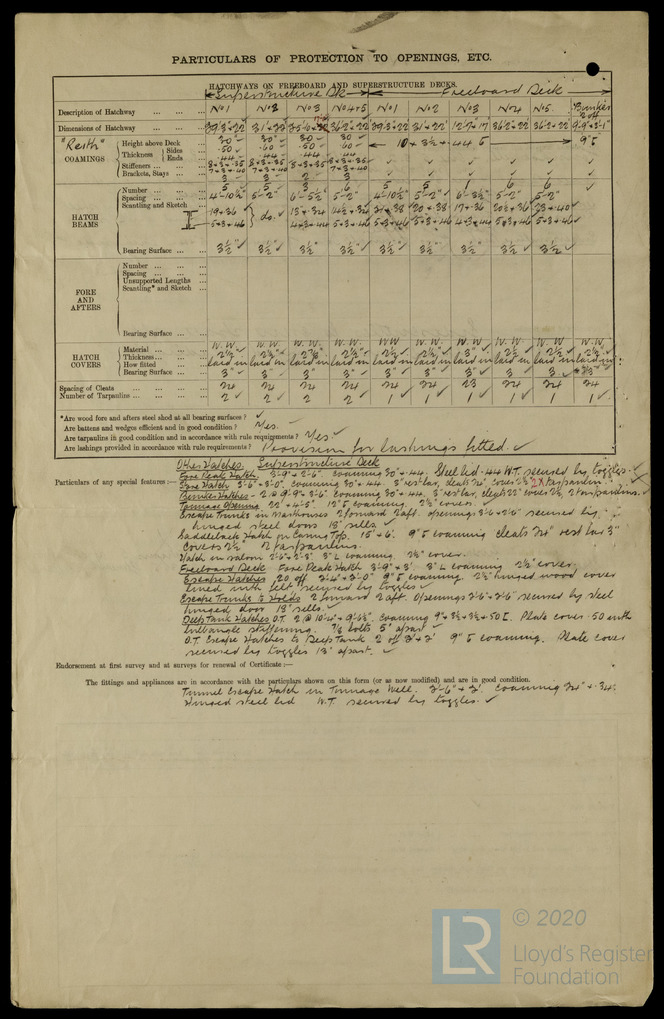 PARTICULARS OF PROTECTION TO OPENINGS, ETC.
HATCHWAYS ON FREEBOARD AND SUPERSTRUCTURE DECKS.
Superstructure Dk Freeboard Deck
Description of Hatchway No1 No2 No3 No4+5 No1 No2 No3 No4 No5 Bunker 2 off
Dimensions of Hatchway 39.3+22 31+22 36.2+22 39.3+22 31+22 12.7+17 36.2+22 36.2+22 9'-9"+3'-1"
COAMINGS
Height above Deck 30" 30" 30 30 10+3½+.44 [ 9" [
Thickness Sides .50 .60 .50 .60
Ends .44 .44 .44
Stiffeners
Brackets, Stays 3 3 2 3
HATCH BEAMS
Number 5 5 3 6 5 5 6 6
Spacing 4'-10½" 5'-2" 6'-5½" 5'-2" 4'-10½" 5'-2" 6'-3½" 5'-2" 5'-2"
Scantling and Sketch 19+36 do. 13+34 17+36
5+3+46 4+3+44 5+3+46 5+3+46 5+3+46 4+3+44 5+3+46 5+3+46
Bearing Surface 3½" 3½" 3½" 3½" 3½" 3½" 3½" 3½" 3½"
FORE AND AFTERS
Number
Spacing
Unsupported Lengths
Scantling* and Sketch
Bearing Surface
HATCH COVERS
Material W.W W.W W.W. W.W W.W W.W. W.W. W.W W.W W.W
Thickness 2½" 2½" 2½" 2½ 2½ 3" 2½ 2½ 2½
How fitted laid in laid in laid in laid in laid in laid in laid in laid in laid in laid in
Bearing Surface 3" 3" 3" 3" 3" 3" 3" 3 3 3"
Spacing of Cleats 24 24 24 24 24 24 23 24 24 24
Number of Tarpaulins 2 2 2 2 1 1 1 1 1 1
*Are wood fore and afters steel shod at all bearing surfaces? ✓
Are battens and wedges efficient and in good condition? Yes.
Are tarpaulins in good condition and in accordance with rule requirements? Yes
Are lashings provided in accordance with rule requirements? Provision for lashings fitted.
Other Hatches Superstructure Deck
Fore Peak Hatch 3'-9"+2'-6" coaming 30"+.44. Steel lid .44 W.T. secured by toggles.
Particulars of any special features:— Fore Hatch 3'-6"+3'-0" coaming 30"+.44 3" rest bar, cleats 24" covers 2½" 2 tarpaulins.
Bunker Hatches - 2 @ 9'-9"+3'-6" coaming 30"+.44, 3" rest bar, cleats 22" covers 2½, 2 tarpaulins.
Tonnage Opening 22'+4'-3" 12" [ coaming, 2½" covers.
Escape Trunks in Warhouses 2 forward 2 aft. openings 3'-6+2'-6" secured by
hinged steel doors 18" sills.
Saddleback Hatch on Casing Top. 15'+6'. 9" [ coaming cleats 24" rest bar 3"
covers 2½ 2 tarpaulins.
Hatch in saloon 2'-6+2'-3" 3" L coaming 2½" cover.
Freeboard Deck Fore Peak Hatch 3'-9"+3'. 3" L coaming 2½" cover.
Escape Hatches 20 off 2'-4"+2'-0" 9" [ coaming. 2½" hinged wood cover
lined with felt secured by toggles
Escape Trunks to Holds 2 forward 2 aft. Openings 2'-6+2'-6" secured by steel
hinged door 18" sills.
Deep Tank Hatches O.T. 2 @ 10'-2"+9'-6½". coaming 9"+3½+3½+.50 [. Plate cover .50 with
bulb angle stiffening. 7/8 bolts 5" apart
O.T. Escape Hatches to Deep Tank 2 off 3'+2' 9" [ coaming. Plate cover
secured by toggles 13" apart.
Endorsement at first survey and at surveys for renewal of Certificate:—
The fittings and appliances are in accordance with the particulars shown on this form (or as now modified) and are in good condition.
Tunnel Escape Hatch in Tonnage Well. 2'-6"+2'. coaming 24"+.34.
Hinged steel lid W.T. secured by toggles.
© 2020
LR
Lloyd's Register
Foundation